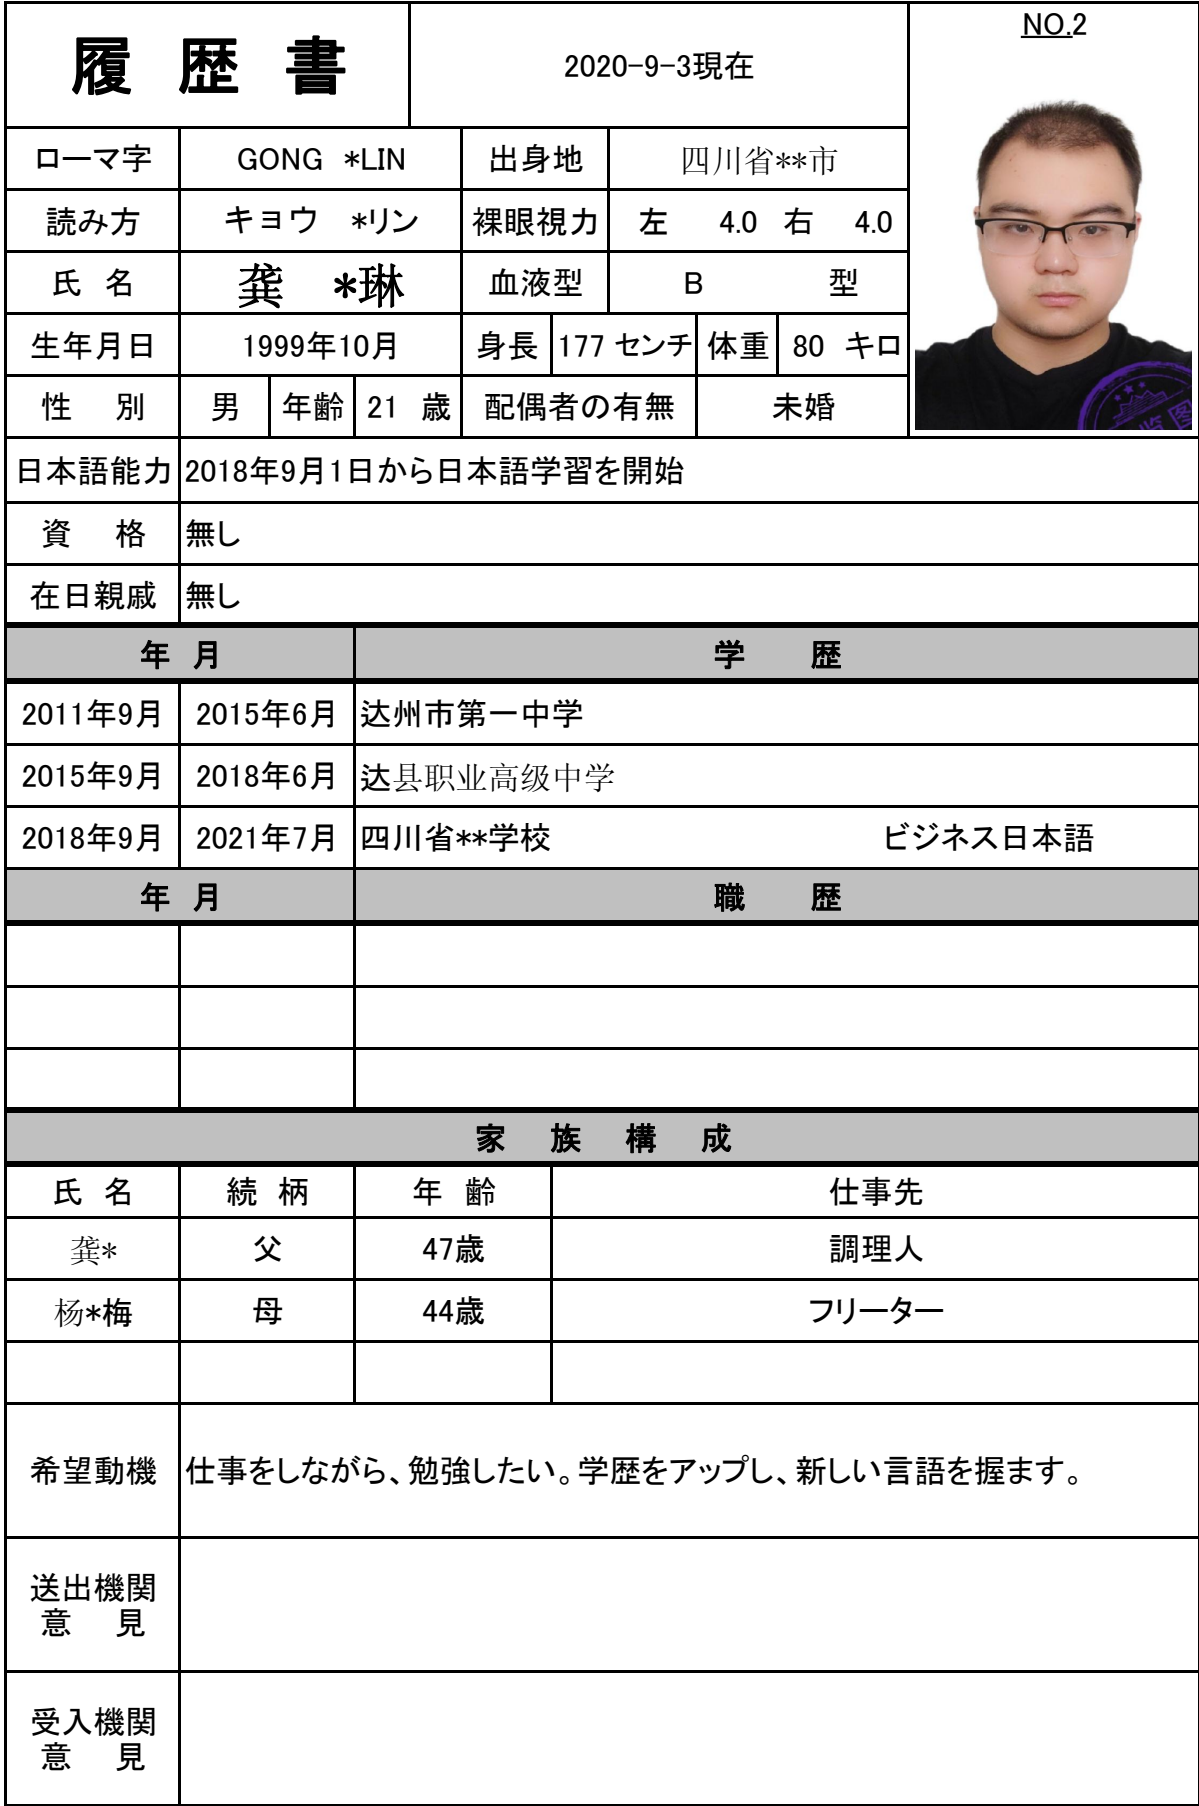 履 歴 書
2020-9-3現在
NO.2
ローマ字 GONG *LIN 出身地 四川省**市
読み方 キョウ *リン 裸眼視力 左 4.0 右 4.0
氏 名 龚 *琳 血液型 B 型
生年月日 1999年10月 身長 177 センチ 体重 80 キロ
性 別 男 年齢 21 歳 配偶者の有無 未婚
日本語能力 2018年9月1日から日本語学習を開始
資 格 無し
在日親戚 無し
年 月 学 歴
2011年9月 2015年6月 达州市第一中学
2015年9月 2018年6月 达县职业高级中学
2018年9月 2021年7月 四川省**学校 ビジネス日本語
年 月 職 歴
家 族 構 成
氏 名 続 柄 年 齢 仕事先
龚* 父 47歳 調理人
杨*梅 母 44歳 フリーター
希望動機 仕事をしながら、勉強したい。学歴をアップし、新しい言語を握ます。
送出機関
意 見
受入機関
意 見